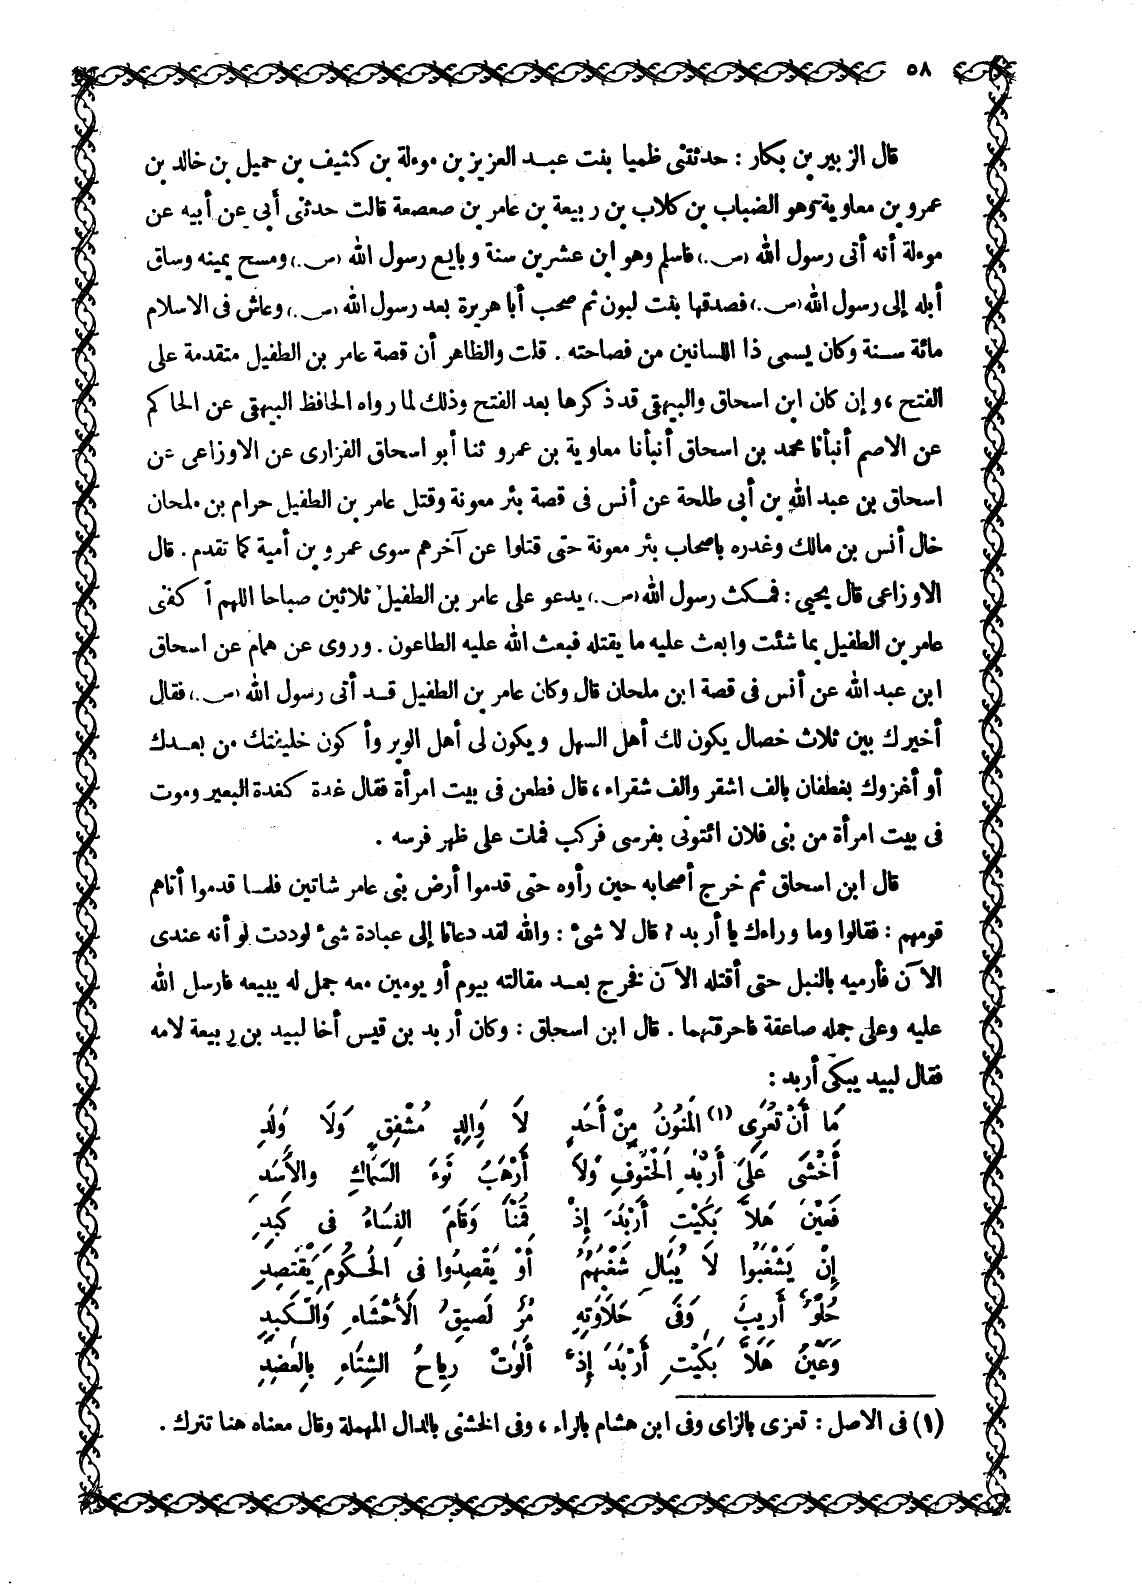 ٥٨
قال الزبير بن بكار : حدثتنى ظميا بنت عبد العزيز بن موءلة بن كثيف بن حميل بن خالد بن
عمرو بن معاوية وهو الضباب بن كلاب بن ربيعة بن عامر بن صعصعة قالت حدثنى أبى عن أبيه عن
موءلة أنه أتى رسول الله (ص.) فاسلم وهو ابن عشرين سنة وبايع رسول الله (ص.) ومسح يمينه وساق
أبله إلى رسول الله (ص.) فصدقها بنت لبون ثم صحب أبا هريرة بعد رسول الله (ص.) وعاش فى الاسلام
مائة سنة وكان يسمى ذا اللسانين من فصاحته . قلت والظاهر أن قصة عامر بن الطفيل متقدمة على
الفتح ، و إن كان ابن اسحاق والبيهقى قد ذكرها بعد الفتح وذلك لما رواه الحافظ البيهقى عن الحاكم
عن الاصم أنبأنا محمد بن اسحاق أنبأنا معاوية بن عمرو ثنا أبو اسحاق الفزارى عن الاوزاعى عن
اسحاق بن عبد الله بن أبى طلحة عن أنس فى قصة بئر معونة وقتل عامر بن الطفيل حرام بن ملحان
خال أنس بن مالك وغدره باصحاب بئر معونة حتى قتلوا عن آخرهم سوى عمرو بن أمية كما تقدم . قال
الاوزاعى قال يحيى : فمكث رسول الله (ص.) يدعو على عامر بن الطفيل ثلاثين صباحا اللهم أكفنى
عامر بن الطفيل بما شئت وابعث عليه ما يقتله فبعث الله عليه الطاعون . وروى عن همام عن اسحاق
ابن عبد الله عن أنس فى قصة ابن ملحان قال وكان عامر بن الطفيل قد أتى رسول الله (ص.) فقال
أخيرك بين ثلاث خصال يكون لك أهل السهل ويكون لى أهل الوبر وأكون خليفتك من بعدك
أو أغزوك بغطفان بالف اشقر والف شقراء ، قال فطعن فى بيت امرأة فقال غدة كغدة البعير وموت
فى بيت امرأة من بنى فلان ائتونى بفرسى فركب فمات على ظهر فرسه .
قال ابن اسحاق ثم خرج أصحابه حين رأوه حتى قدموا أرض بنى عامر شاتين فلما قدموا أتاهم
قومهم : فقالوا وما وراءك يا أربد ؟ قال لا شىء : والله لقد دعانا إلى عبادة شىء لوددت لو أنه عندى
الآن فأرميه بالنبل حتى أقتله الآن فخرج بعد مقالته بيوم أو يومين معه جمل له يبيعه فارسل الله
عليه وعلى جمله صاعقة فاحرقتهما . قال ابن اسحاق : وكان أربد بن قيس أخا لبيد بن ربيعة لامه
فقال لبيد يبكى أربد :
مَا أَنْ تَعَزِّى (١) المَنُونُ مِنْ أَحَدٍ لَا وَالِدٍ مُشْفِقٍ وَلَا وَلَدِ
أَخْشَى عَلَى أَرْبَدِ الحُتُوفِ وَلاَ أَرْهَبُ نَوءَ السِّمَاكِ والأَسَدِ
فَعَيْنِ هَلاَّ بَكَيْتِ أَرْبَدَ إِذْ قُمْنَا وَقَامَ النِسَاءُ فى كَبِدِ
إِنْ يَشْغَبُوا لَا يُبَالِ شَغْبَهُمُ أَوْ يَقْصِدُوا فى الحُكُومِ يَقْتَصِدِ
حُلْوٌ أَرِيبٌ وَفى حَلَاوَتِهِ مُرٌّ لَصِيقُ الأَحْشَاءِ وَالْكَبِدِ
وَعَيْنُ هَلاَّ بَكَيْتِ أَرْبَدَ إِذْ أَلوَتْ رِياحُ الشِتَاءِ بِالعَضِدِ
(١) فى الاصل : تعزى بالزاى وفى ابن هشام بالراء ، وفى الخشنى بالدال المهملة وقال معناه هنا تترك .